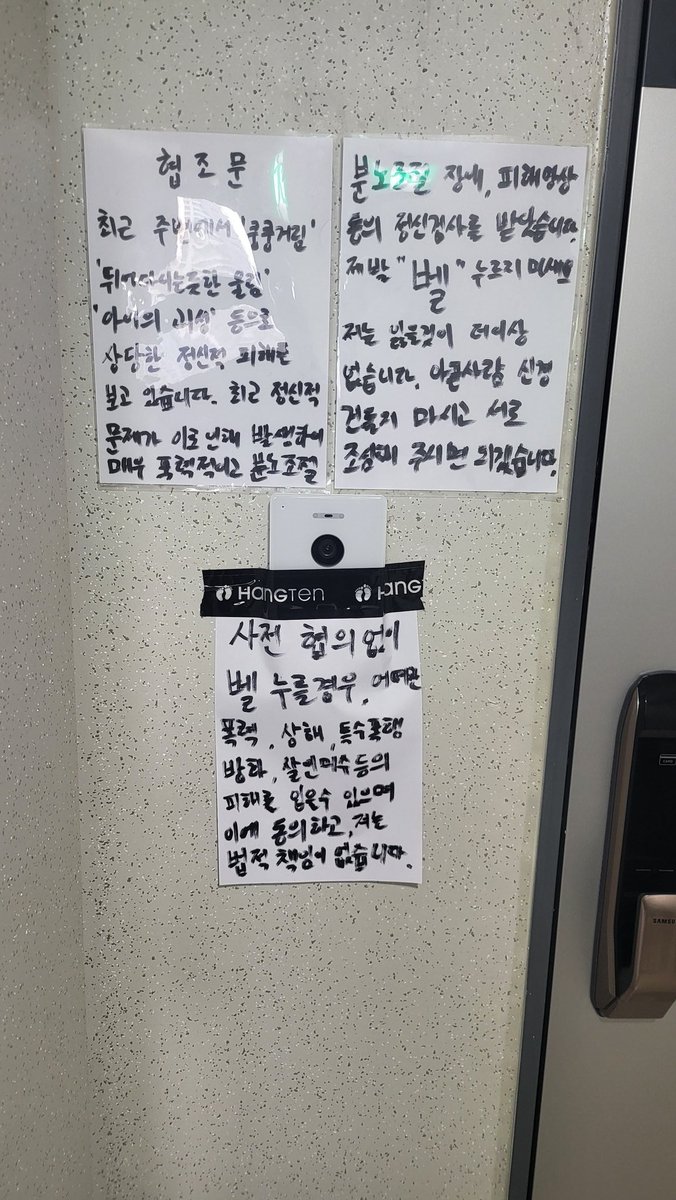 협조문
최근 주변에서 '쿵쿵거림'
'뛰어다니는듯한 울림'
'아이의 괴성' 등으로
상당한 정신적 피해를
보고 있습니다. 최근 정신적
문제가 이로인해 발생하여
매우 폭력적이고 분노조절
분노조절 장애, 피해망상
등의 정신검사를 받았습니다.
제발 "벨" 누르지 마세요
저는 잃을것이 더이상
없습니다. 아픈사람 신경
건들지 마시고 서로
조심해 주시면 되겠습니다.
HANGTEN HANG
사전 협의없이
벨 누를경우, 어떠한
폭력, 상해, 특수폭행
방화, 살인미수등의
피해를 입을수 있으며
이에 동의하고, 저는
법적 책임이 없습니다.
SAMSU